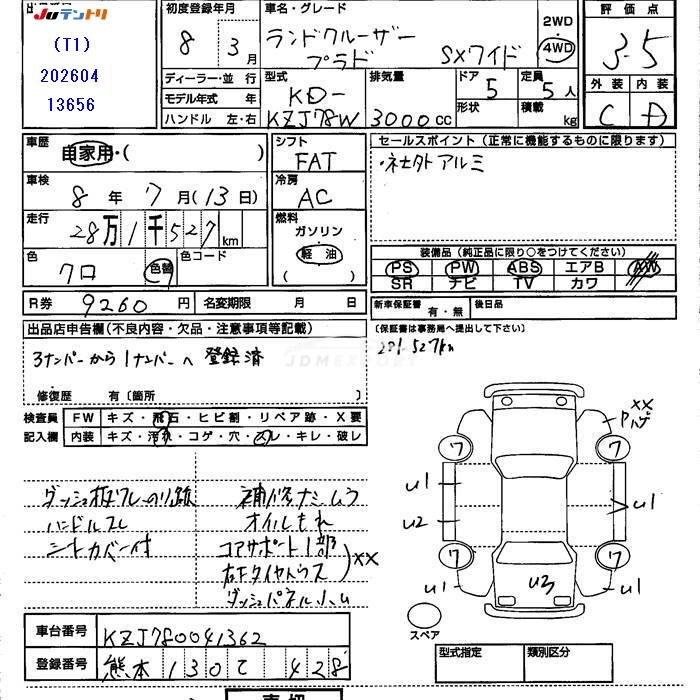 JUテントリ
(T1)
202604
13656
初度登録年月
8 3月
車名・グレード
ランドクルーザー
プラド SXワイド
2WD
4WD
評価点
3.5
外装 内装
C D
ディーラー・並行
モデル年式 年
ハンドル 左・右
型式
KD-
KZJ78W
排気量
3000cc
ドア
5
形状
定員
5人
積載
kg
車歴
自家用・( )
車検
8年7月(13日)
走行
28万1千527km
色
クロ
色替
色コード
シフト
FAT
冷房
AC
燃料
ガソリン
軽油
( )
セールスポイント(正常に機能するものに限ります)
・社外アルミ
装備品(純正品に限り○をつけてください)
PS PW ABS エアB AW
SR ナビ TV カワ
R券 9260円 名変期限 月 日
新車保証書 有・無 後日品
(保証書は事務局へ提出して下さい)
281,527km
出品店申告欄(不良内容・欠品・注意事項等記載)
3ナンバーから1ナンバーへ登録済
修復歴 有〔箇所 〕
検査員 FW キズ・飛石・ヒビ割・リペア跡・X要
記入欄 内装 キズ・汚れ・コゲ・穴・スレ・キレ・破レ
ハンドルスレ
シートカバー付
補修ナミムラ
オイルもれ
コアサポート1部
右下タイヤハウス
XX
XX
Pハゲ
ワ ワ
U1 U1
U2
ワ ワ
U1 U3 U1
スペア
車台番号 KZJ780041362
登録番号 熊本 130 て 428
型式指定 類別区分